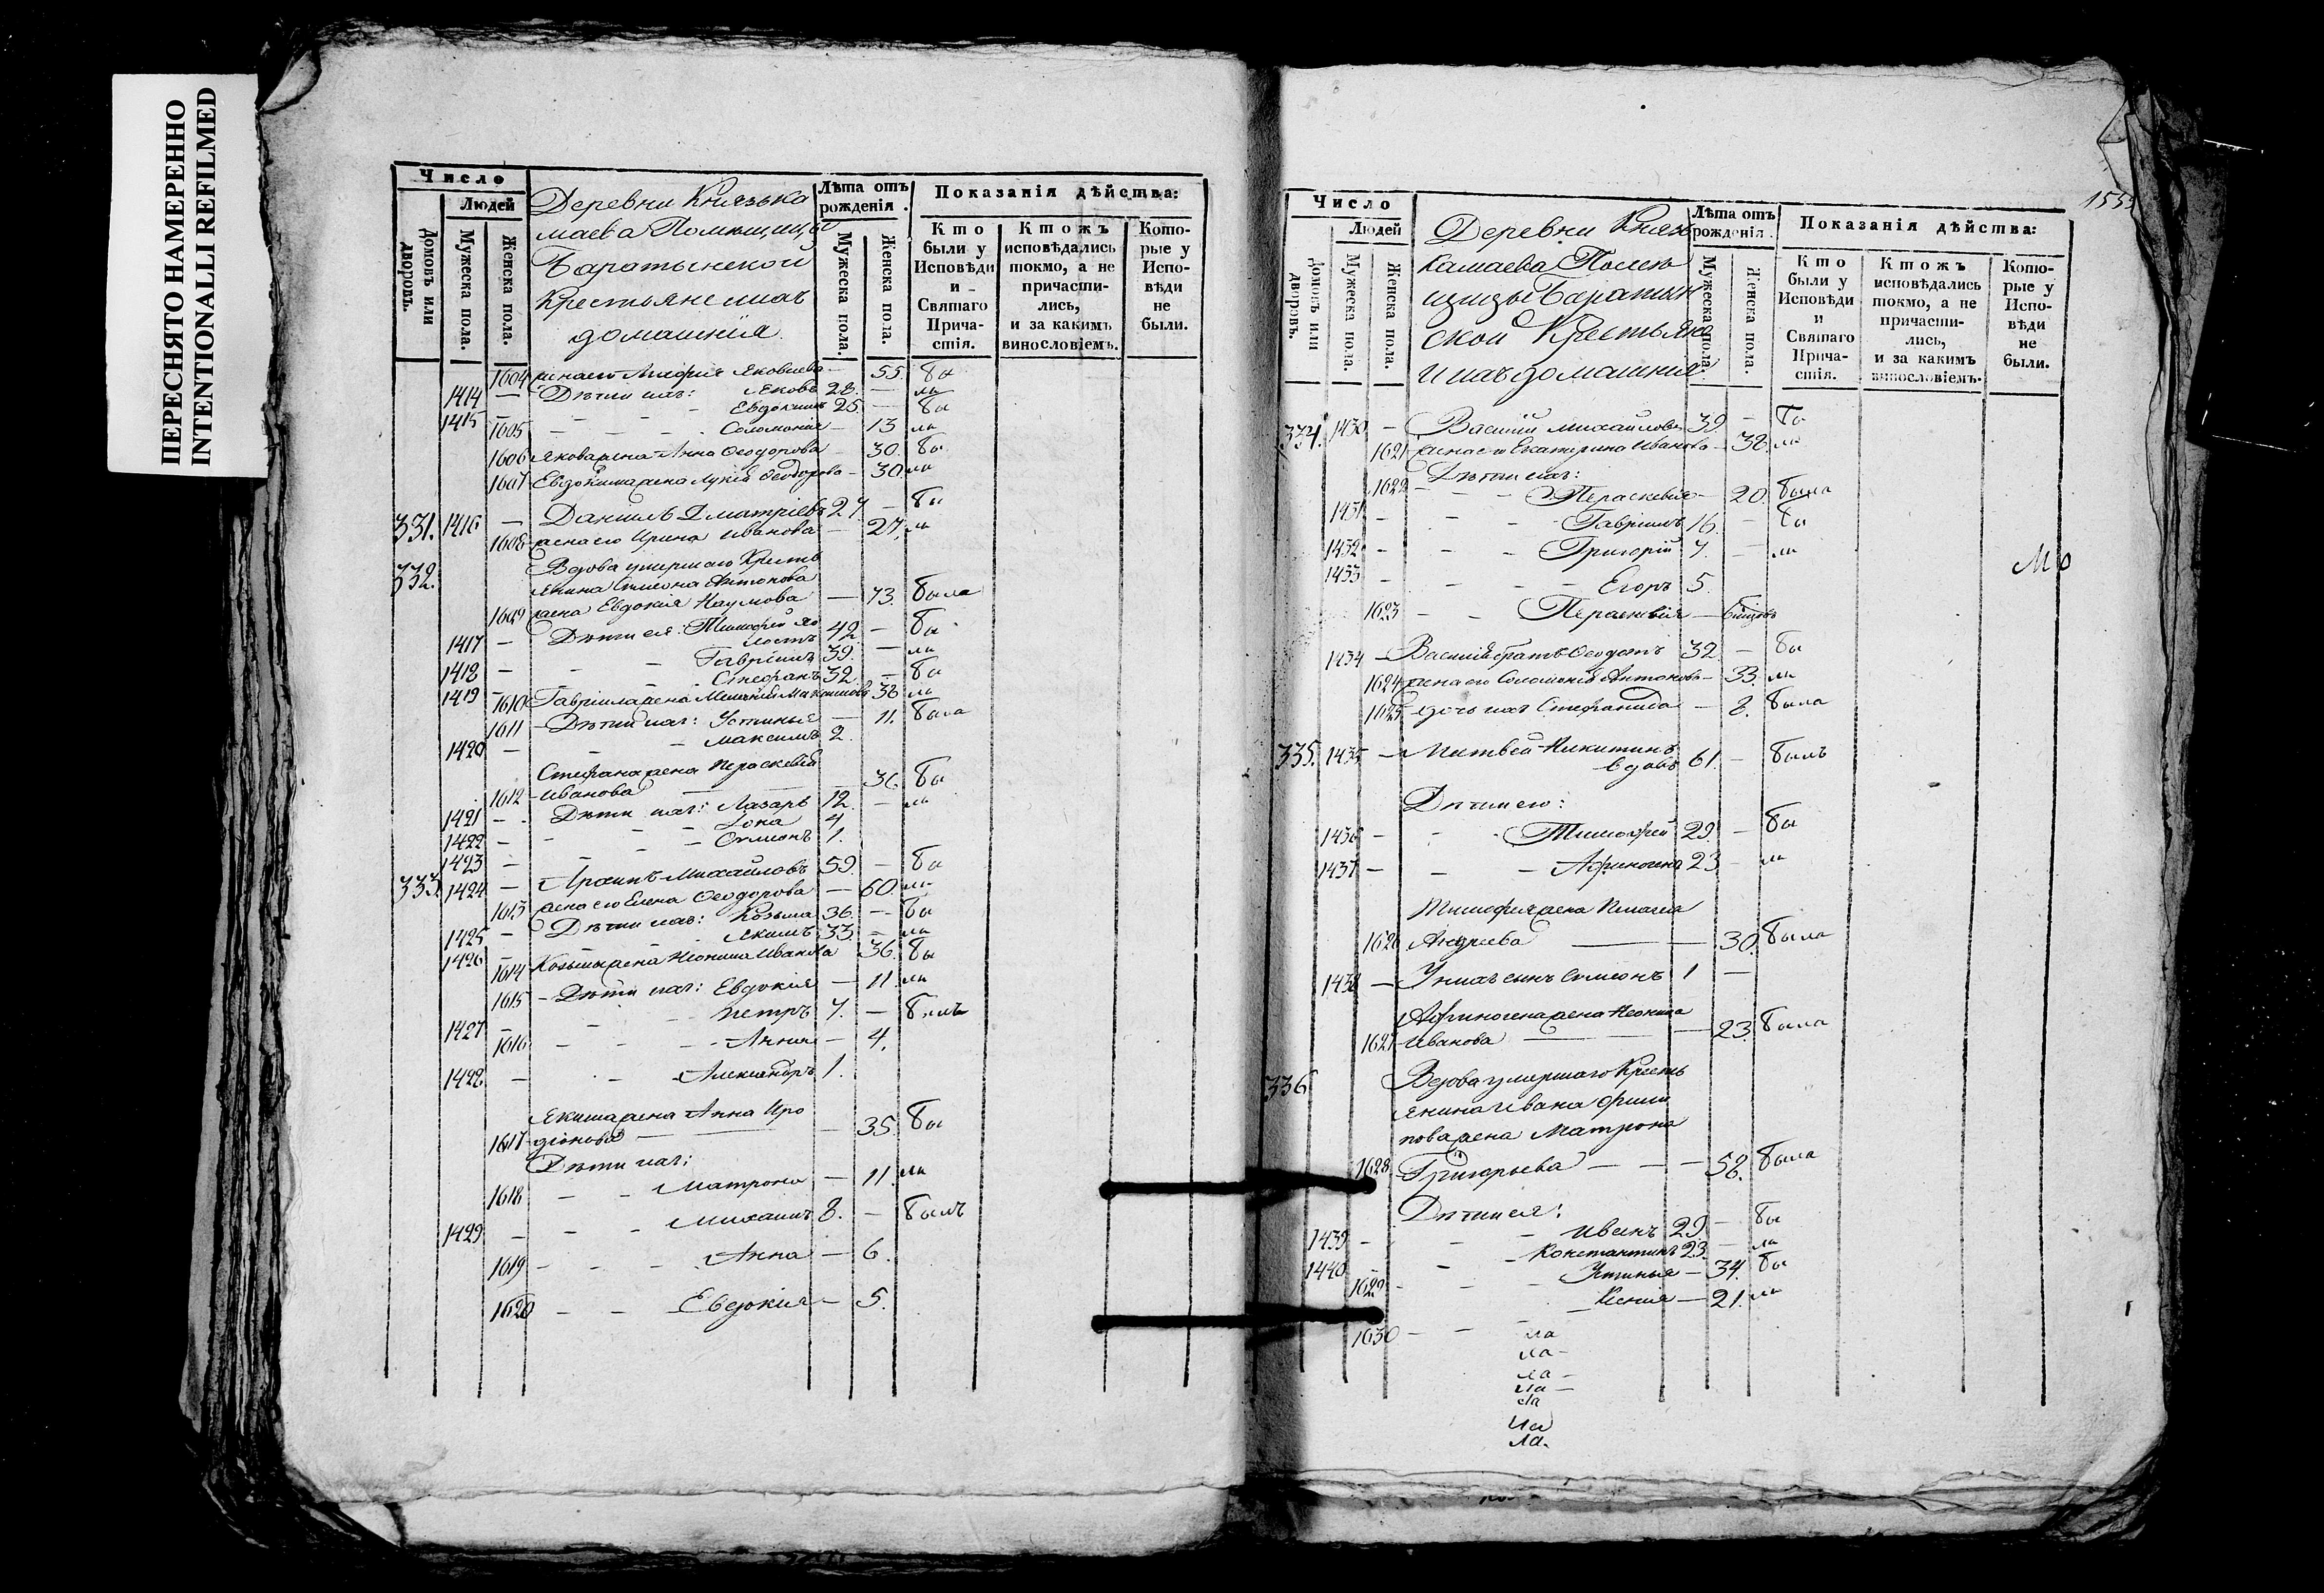 ПЕРЕСНЯТО НАМЕРЕННО
INTENTIONALLI REFILMED
Число
Людей
Домовъ или дворовъ.
Мужеска пола.
Женска пола.
Деревни Князька
маева Помещицы
Баратынской
Крестьяне ихъ
домашнія
Лѣта отъ рожденія.
Мужеска пола.
Женска пола.
Показанія дѣйства:
Кто были у Исповѣди и Святаго Причастія.
Ктожъ исповѣдались токмо, а не причастились, и за какимъ винословіемъ.
Которые у Исповѣди не были.
1604 жена его Яковлева — 55. бы
1414 — Дѣти ихъ: Яковъ 28. — ли
1415 — Евдокимъ 25. — бы
1605 — Соломонія — 13 ли
1606 Якова жена Анна Ѳеодорова — 30. бы
1607 Евдокима жена Ѳеодорова — 30. ли
331. 1416 — Даніилъ Дмитріевъ 27. — бы
1608 жена его Ирина Иванова — 27. ли
332. Вдова умершаго Кресть
янина Симеона Антонова
1609 жена Евдокія Наумова — 73. была
1417 — Дѣти ея: Тимофей
42. — бы
1418 — Гавріилъ 39. — ли
1419 — Стефанъ 32. — бы
1610 Гавріила жена Максимова 38 ли
1611 — Дѣти ихъ: Устинья — 11. была
1420 — Максимъ 2.
Стефана жена Параскевія
1612 Иванова — 36. бы
1421 — Дѣти ихъ: Лазарь 12. — ли
1422 — 4
1423 — Симеонъ 1.
333. 1424 — Михайловъ 59. — бы
1613 жена его Елена Ѳеодорова — 60. ли
1425 — Дѣти ихъ: Козьма 36. — бы
1426 — Якимъ 33. — ли
1614 Козьмы жена Неонила Иванова 36. бы
1615 — Дѣти ихъ: Евдокія — 11 ли
1427 — Петръ 7. — былъ
1616 — Анна — 4.
1428 — Александръ 1.
Якима жена Анна Иро
1617 діонова — 35. бы
Дѣти ихъ:
1618 — Матрона — 11. ли
1429 — Михаилъ 8. — былъ
1619 — Анна — 6.
1620 — Евдокія — 5.
1555
Число
Людей
Домовъ или дворовъ.
Мужеска пола.
Женска пола.
Деревни Князь
камаева Помѣ
щицы Баратын
ской Крестьяне
и ихъ домашнія
Лѣта отъ рожденія.
Мужеска пола.
Женска пола.
Показанія дѣйства:
Кто были у Исповѣди и Святаго Причастія.
Ктожъ исповѣдались токмо, а не причастились, и за какимъ винословіемъ.
Которые у Исповѣди не были.
334. 1430 — Василій Михайловъ 39. — бы
1621 жена его Екатерина Иванова — 38. ли
Дѣти ихъ:
1622 — Параскевія — 20. была
1431 — Гавріилъ 16. — бы
1432 — Григорій 7. — ли
1433 — Егоръ 5.
1623 — Параскевія —
1434 — Василія братъ Ѳеодотъ 32. — бы
1624 жена его Соломонія Антонова — 33. ли
1625 дочь ихъ Стефанида — 8. была
335. 1435 — Матвей Никитинъ
вдовъ 61. — былъ
Дѣти его:
1436 — Тимофей 29. — бы
1437 — Афиногенъ 23 — ли
Тимофея жена Пелагея
1626 Андреева — 30. была
1438 — У нихъ сынъ Симеонъ 1 —
Афиногена жена Неонила
1627 Иванова — 23. была
336 Вдова умершаго Кресть
янина Ивана Фили
пова жена Матрона
1628. Григорьева — 58. была
Дѣти ея:
1439 — Иванъ 29. — бы
1440 — Константинъ 23. — ли
1629 — Устинья — 34. бы
1630 — Ксенія — 21. ли
ла
ла
ла
ла
ла
ла
ла.